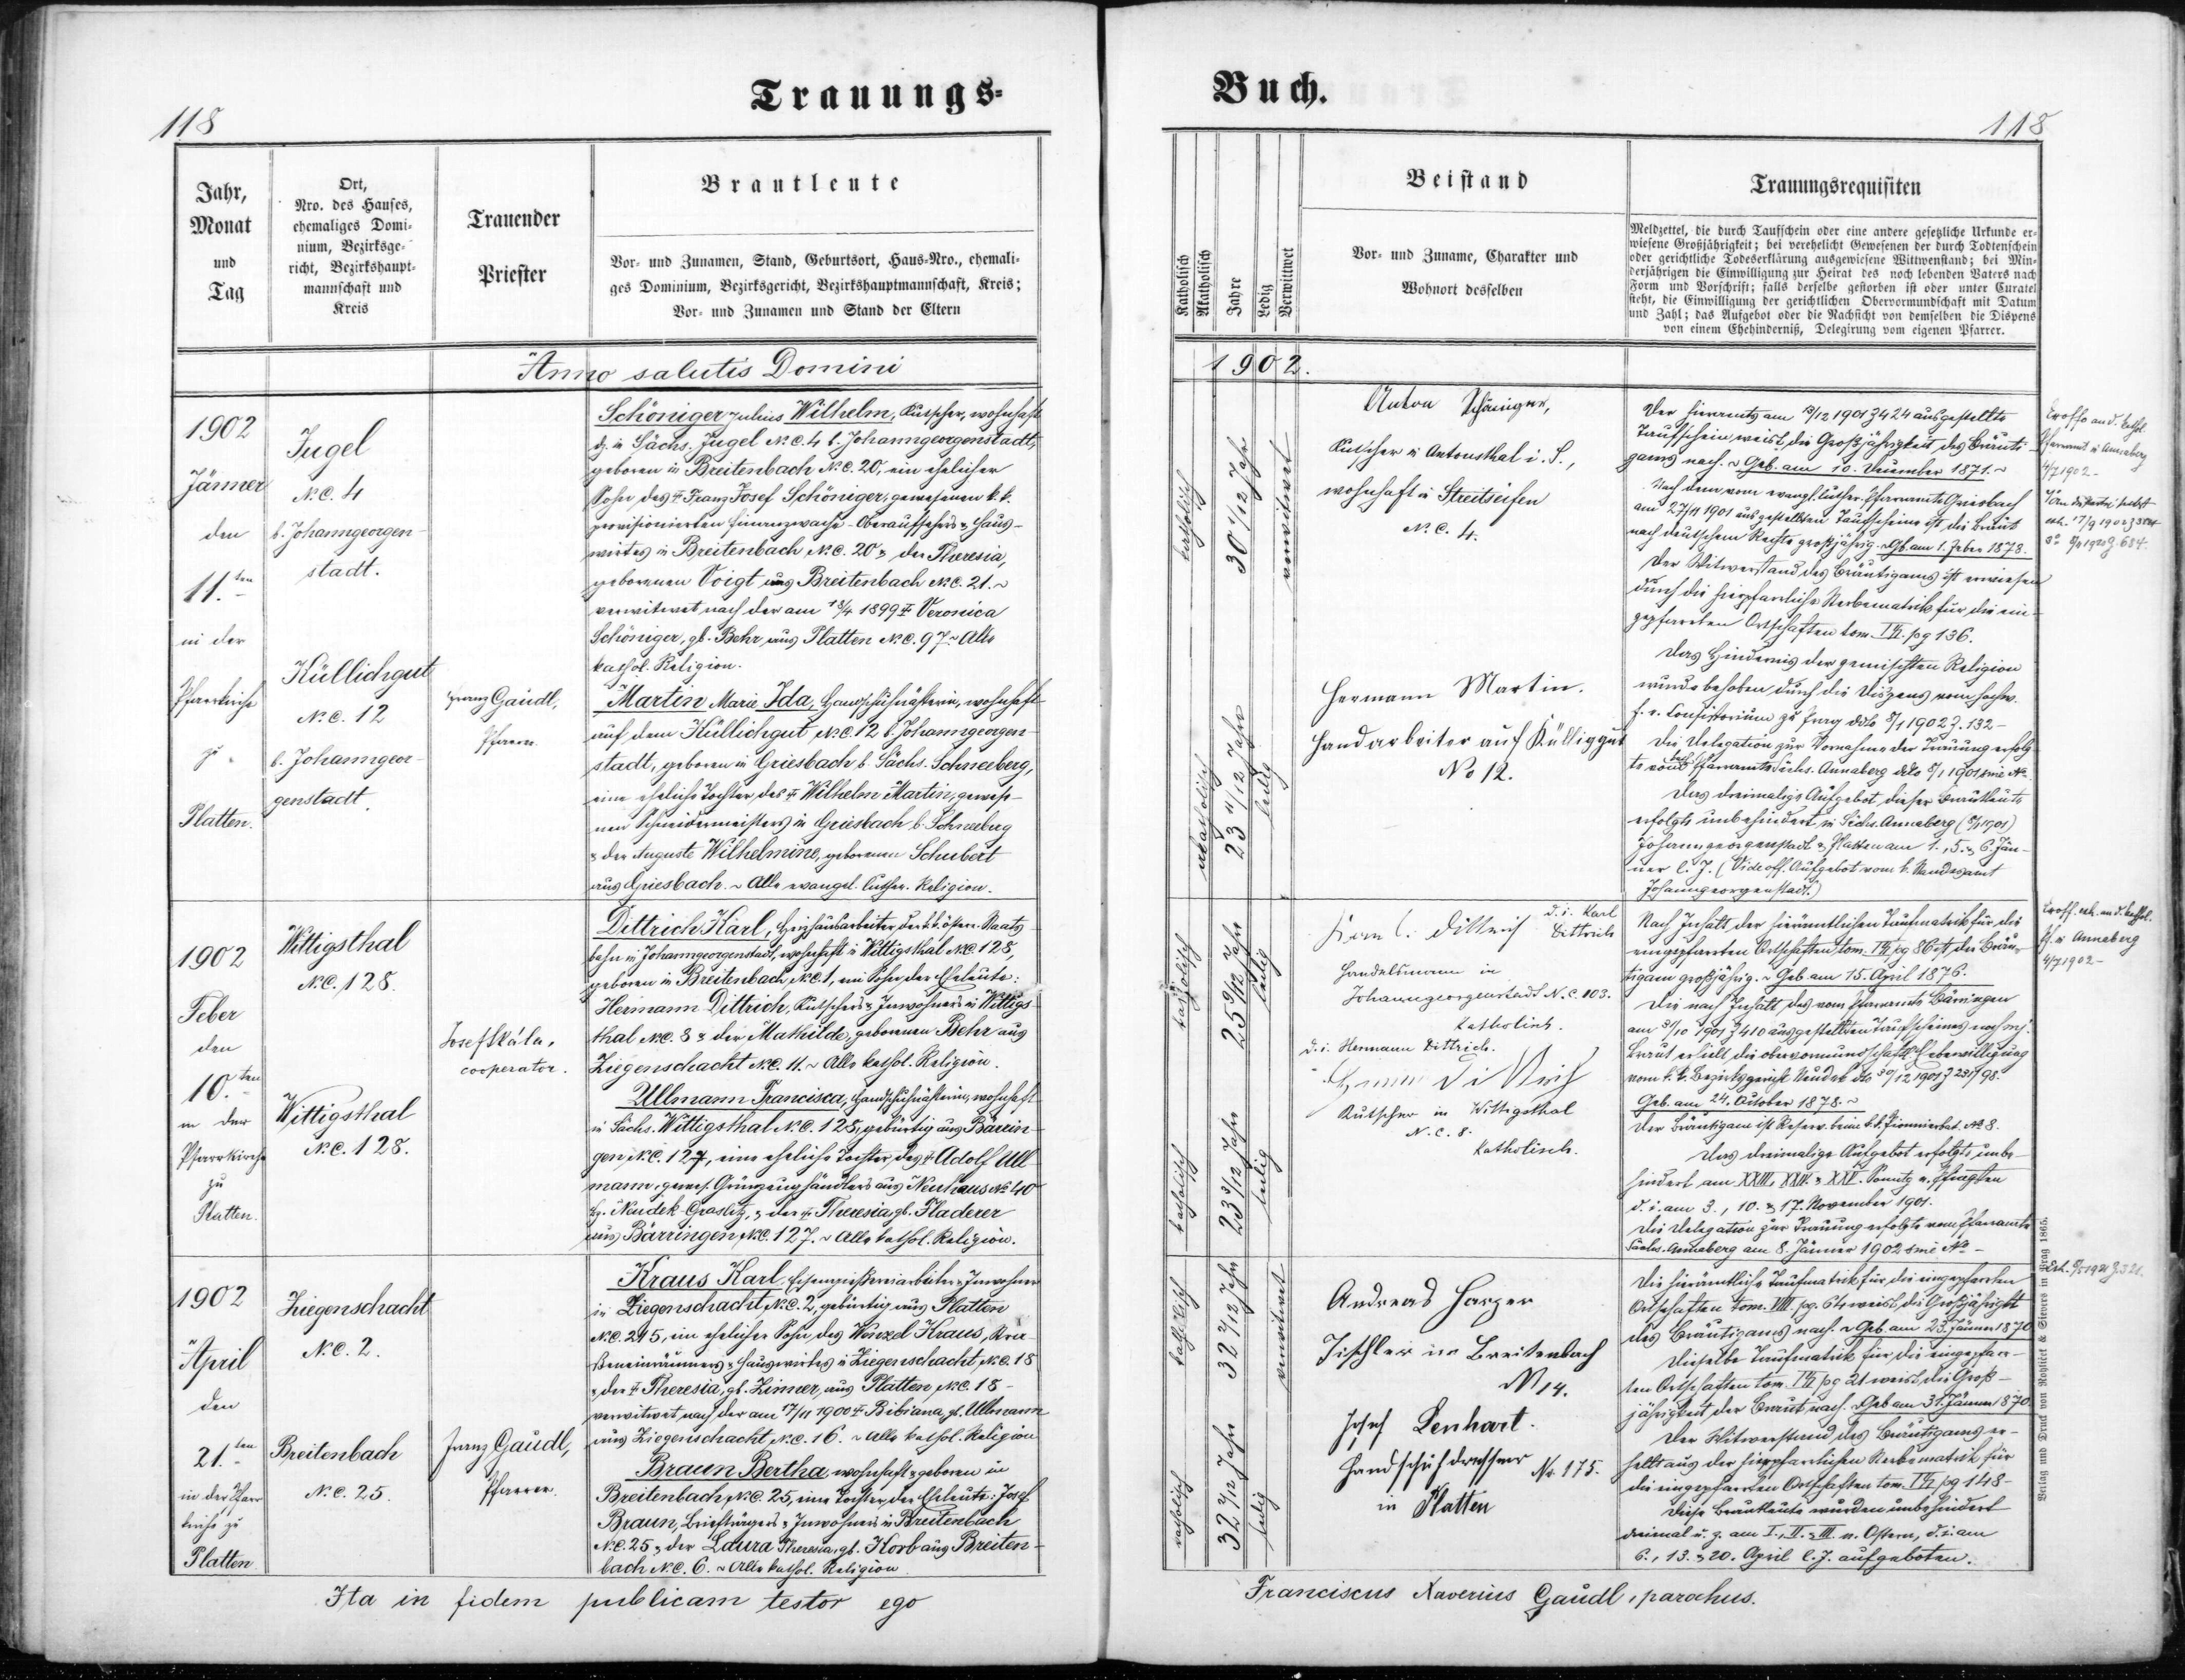 118
Trauungs-
Jahr,
Monat
und
Tag
Ort,
Nro. des Hauses,
ehemaliges Domi-
nium, Bezirksge-
richt, Bezirkshaupt-
mannschaft und
Kreis
Trauender
Priester
Brautleute
Vor- und Zunamen, Stand, Geburtsort, Haus-Nro., ehemali-
ges Dominium, Bezirksgericht, Bezirkshauptmannschaft, Kreis;
Vor- und Zunamen und Stand der Eltern
Anno salutis Domini
1902
Jänner
den
11.ten
in der
Pfarrkirche
zu
Platten.
Jugel
N.C. 4
b. Johanngeorgen-
stadt.
Küllichgut
N.C. 12
b. Johanngeor-
genstadt.
Franz Gaudl,
Pfarrer.
Schöniger Julius Wilhelm, Kutscher, wohnhaft
dz. in Sächs. Jugel N.C. 4 b. Johanngeorgenstadt,
geboren in Breitenbach N.C. 20, ein ehelicher
Sohn des † Franz Josef Schöniger, gewesenen k.k.
provisionierten Finanzwach-Oberaufsehers & Haus-
wirtes in Breitenbach N.C. 20 & der Theresia,
geborenen Voigt aus Breitenbach N.C. 21. ~
verwitwet nach der am 18/4 1899 † Veronica
Schöniger, gb. Behr aus Platten N.C. 97. ~ Alle
kathol. Religion.
Martin Marie Ida, Handschuhnäherin, wohnhaft
auf dem Küllichgut N.C. 12 b. Johanngeorgen-
stadt, geboren in Griesbach b. Sächs. Schneeberg,
eine eheliche Tochter des † Wilhelm Martin, gewese-
nen Schneidermeisters in Griesbach b. Schneeberg
& der Auguste Wilhelmine, geborenen Schubert
aus Griesbach. ~ Alle evangel. luther. Religion.
1902
Feber
den
10.ten
in der
Pfarrkirche
zu
Platten.
Wittigsthal
N.C. 128.
Wittigsthal
N.C. 128.
Josef Skála,
cooperator.
Dittrich Karl, Heizhausarbeiter der k.k. österr. Staats-
bahn in Johanngeorgenstadt, wohnhaft in Wittigsthal N.C. 128,
geboren in Breitenbach N.C. 1, ein Sohn der Eheleute:
Hermann Dittrich, Kutschers & Inwohners in Wittigs-
thal N.C. 8 & der Mathilde, geborenen Behr aus
Ziegenschacht N.C. 11. ~ Alle kathol. Religion.
Ullmann Francisca, Handschuhnäherin, wohnhaft
in Sächs. Wittigsthal N.C. 128, gebürtig aus Bärrin-
gen N.C. 127, eine eheliche Tochter des † Adolf Ull-
mann, gewes. Grünzeughändlers aus Neuhaus No 40
Neudek Graslitz, & der † Theresia, gb. Fladerer
aus Bärringen N.C. 127. ~ Alle kathol. Religion.
1902
April
den
21.ten
in der Pfarr-
kirche zu
Platten.
Ziegenschacht
N.C. 2.
Breitenbach
N.C. 25.
Franz Gaudl,
Pfarrer.
Kraus Karl, Inwohner
in Ziegenschacht N.C. 2, gebürtig aus Platten
N.C. 215, ein ehelicher Sohn des Wenzel Kraus, Stra-
ßeneinräumers & Hauswirtes in Ziegenschacht N.C. 18
& der † Theresia, gb. Zinner, aus Platten N.C. 18 -
verwitwet nach der am 17/11 1900 † Bibiana, gb. Ullmann
aus Ziegenschacht N.C. 16. ~ Alle kathol. Religion
Braun Bertha, wohnhaft & geboren in
Breitenbach N.C. 25, eine Tochter der Eheleute: Josef
Braun, Briefträgers & Inwohners in Breitenbach
N.C. 25 & der Laura Theresia, gb. Korb aus Breiten-
bach N.C. 6. ~ Alle kathol. Religion.
Ita in fidem publicam testor ego
Buch.
118
Katholisch
Akatholisch
Jahre
Ledig
Verwittwet
Beistand
Vor- und Zuname, Charakter und
Wohnort desselben
Trauungsrequisiten
Meldzettel, die durch Taufschein oder eine andere gesetzliche Urkunde er-
wiesene Großjährigkeit; bei verehelicht Gewesenen der durch Todtenschein
oder gerichtliche Todeserklärung ausgewiesene Wittwenstand; bei Min-
derjährigen die Einwilligung zur Heirat des noch lebenden Vaters nach
Form und Vorschrift; falls derselbe gestorben ist oder unter Curatel
steht, die Einwilligung der gerichtlichen Obervormundschaft mit Datum
und Zahl; das Aufgebot oder die Nachsicht von demselben die Dispens
von einem Ehehinderniß, Delegirung vom eigenen Pfarrer.
1902.
katholisch
30 1/12 Jahr
verwitwet
Anton Schöniger,
Kutscher in Antonsthal i. S.,
wohnhaft in Streitseifen
N.C. 4.
akatholisch
23 11/12 Jahre
ledig
Hermann Martin.
Handarbeiter auf Külliggut
No 12.
Der hieramts am 13/12 1901 Z 424 ausgestellte
Taufschein weist die Großjährigkeit des Bräuti-
gams nach. ~ Geb. am 10. Dezember 1871. ~
Nach dem vom evangl. luther. Pfarramte Griesbach
am 27/11 1901 ausgestellten Taufscheine ist die Braut
nach deutschem Rechte großjährig. ~ Gb. am 1. Feber 1878.
Der Witwerstand des Bräutigams ist erwiesen
durch die hierpfarrliche Sterbematrik für die ein-
gepfarrten Ortschaften tom. pg 136.
Das Hindernis der gemischten Religion
wurde behoben durch die Dispens vom hochw.
f. e. Consistorium zu Prag ddo 8/1 1902 Z. 132 -
Die Delegation zur Vornahme der Trauung erfolg-
te vom Pfarramte Sächs. Annaberg ddo 8/1 1901 sine No.
Das dreimalige Aufgebot dieser Brautleute
erfolgte unbehindert in Sächs. Annaberg
Johanngeorgenstadt & Platten am 1., 5. & 6. Jän-
ner l. J. (Vide off. Aufgebot vom k. Standesamt
Johanngeorgenstadt.)
Pfarramt in Annaberg
4/7 1902 -
katholisch
25 9/12 Jahr
ledig
d. i. Karl
Dittrich
Handelsmann in
Johanngeorgenstadt N.C. 103.
katholisch.
d. i. Hermann Dittrich.
Kutscher in Wittigsthal
N.C. 8.
katholisch.
katholisch
23 3/12 Jahr
ledig
Nach Inhalt der hierämtlichen Taufmatrik für die
eingepfarrten Ortschaften tom. pg 86 ist der Bräu-
tigam großjährig. ~ Geb. am 15. April 1876.
Die nach Inhalt des vom Pfarramte Bärringen
am 31/10 1901 Z 410 ausgestellten Taufscheines noch mj.
Braut erhielt die obervormundschaftl. Ehebewilligung
vom k.k. Bezirksgericht Neudek dto 30/12 1901
Geb. am 24. October 1878. ~
Der Bräutigam ist Reserv. beim k.k. Pionnierbat. No 8.
Das dreimalige Aufgebot erfolgte unbe-
hindert am XXIII., XXIV. & XXV. Sonntg n. Pfingsten
d. i. am 3., 10. & 17. November 1901.
Die Delegation zur Trauung erfolgte vom Pfarramte
Sächs. Annaberg am 8. Jänner 1902 sine No -
Pf. in Annaberg
4/7 1902 -
katholisch
32 2/12 Jahr
verwitwet
Andreas Harzer
Tischler in Breitenbach
N 14.
katholisch
32 2/12 Jahr
ledig
Josef Lenhart.
Handschuhdresseur No. 175.
in Platten
Die hierämtliche Taufmatrik für die eingepfarrten
Ortschaften tom. VIII. pg. 64 weist die Großjährigkt
des Bräutigams nach. ~ Geb. am 23. Jänner 1870
Dieselbe Taufmatrik für die eingepfarr-
ten Ortschaften tom. pg 21 weist die Groß-
jährigkeit der Braut nach. ~ Geb am 31. Jänner 1870.
Der Witwerstand des Bräutigams er-
hellt aus der hierpfarrlichen Sterbematrik für
die eingepfarrten Ortschaften tom. pg 148 -
Diese Brautleute wurden unbehindert
dreimal u. z. am I., II. & III. n. Ostern, d. i. am
6., 13. & 20. April l. J. aufgeboten.
Verlag und Druck von Rohliček & Sievers in Prag 1865.
Franciscus Xaverius Gaudl, parochus.